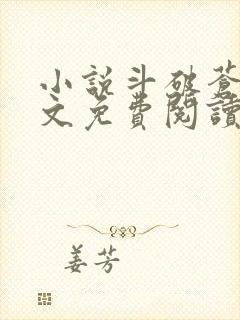 小說斗破蒼
文免費閱讀
姜芳